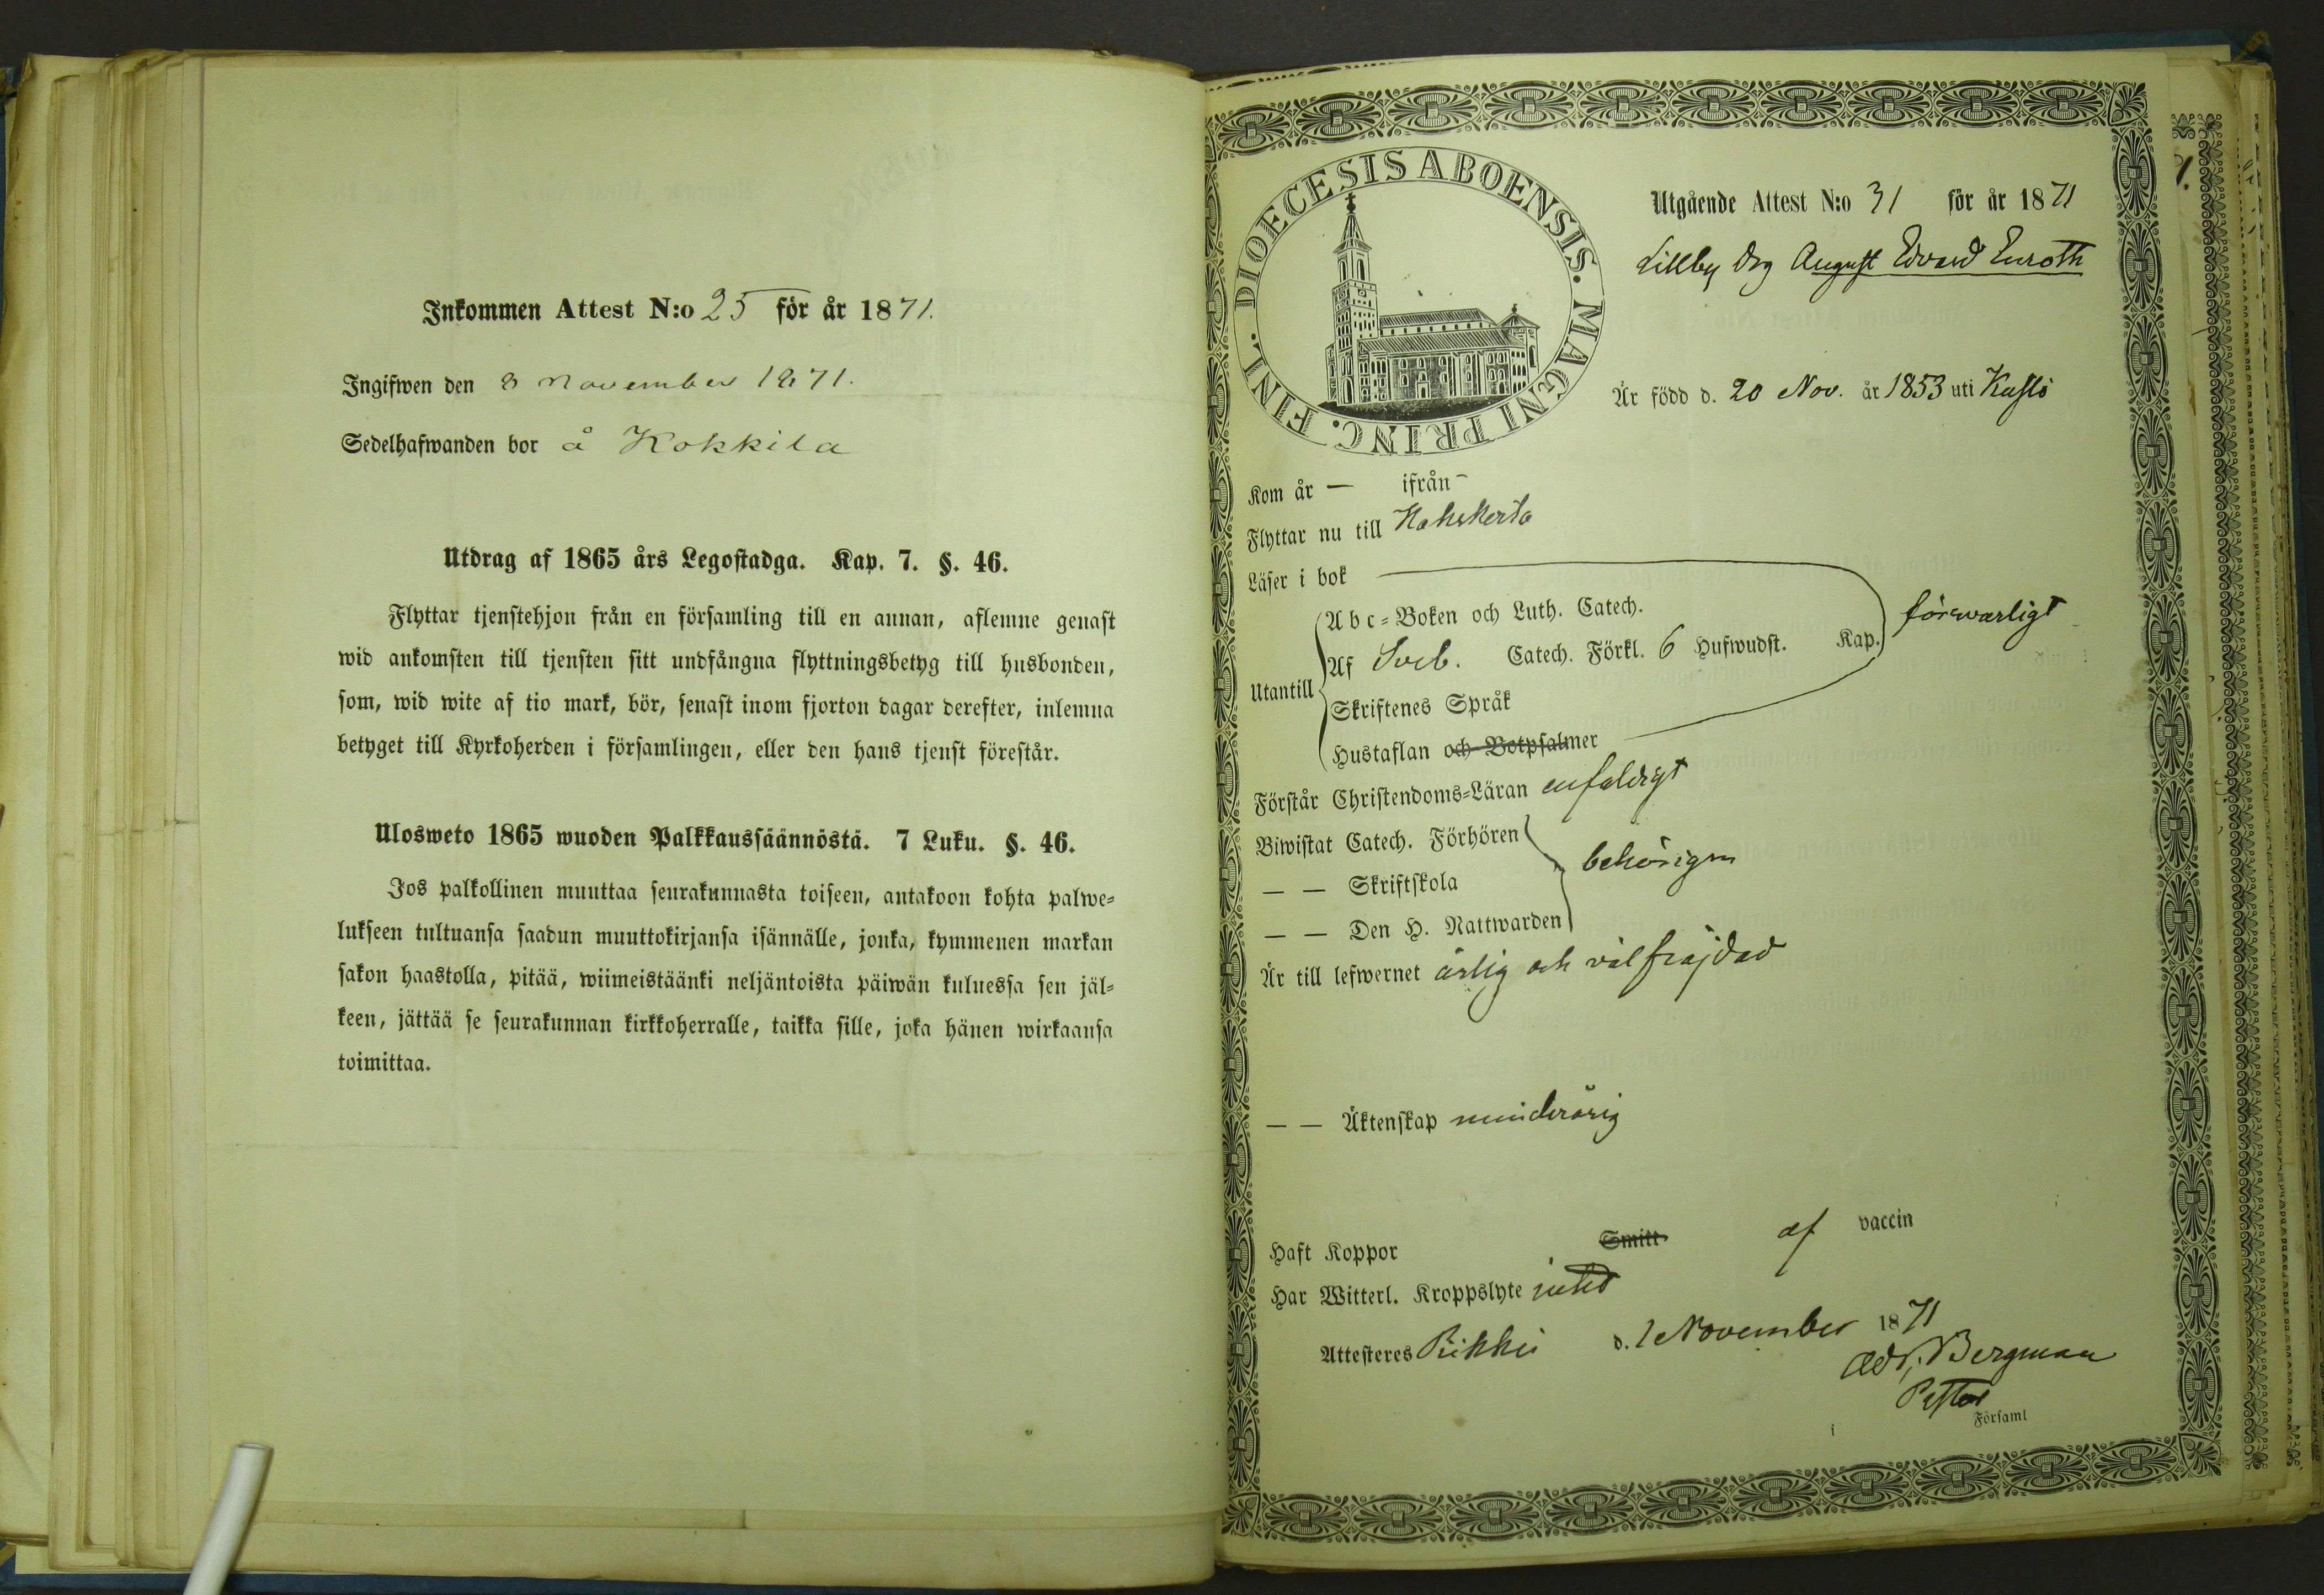 Inkommen Attest N:o 25 för år 1871.
Ingifwen den 8 November 1871.
Sedelhafwanden bor å Kokkila
Utdrag af 1865 års Legostadga. Kap. 7. §. 46.
Flyttar tjenstehjon från en församling till en annan, aflemne genast
wid ankomsten till tjensten sitt undfångna flyttningsbetyg till husbonden,
som, wid wite af tio mark, bör, senast inom fjorton dagar derefter, inlemna
betyget till Kyrkoherden i församlingen, eller den hans tjenst förestår.
Ulosweto 1865 wuoden Palkkaussäännöstä. 7 Luku. §. 46.
Jos palkollinen muuttaa seurakunnasta toiseen, antakoon kohta palwe-
lukseen tultuansa saadun muuttokirjansa isännälle, jonka, kymmenen markan
sakon haastolla, pitää, wiimeistäänki neljäntoista päiwän kuluessa sen jäl-
keen, jättää se seurakunnan kirkkoherralle, taikka sille, joka hänen wirkaansa
toimittaa.
DIOECESIS ABOENSIS. MAGNI PRINC. FINL.
Utgående Attest N:o 31 för år 1871
Lillby Drg August Edvard Enroth
Är född d. 20 Nov. år 1853 uti Kustö
Kom år — ifrån —
Flyttar nu till Kakskerta
Läser i bok
Utantill
A b c-Boken och Luth. Catech.
Af Sveb. Catech. Förkl. 6 Hufwudst. Kap.
försvarligt
Skriftenes Språk
Hustaflan och Botpsalmer
Förstår Christendoms-Läran enfaldigt
Biwistat Catech. Förhören
— — Skriftskola
behörigen
— — Den H. Nattwarden
Är till lefwernet ärlig och välfräjdad
— — Äktenskap minderårig
Haft Koppor Smitt af vaccin
Har Witterl. Kroppslyte intet
Attesteres Piikkis d. 1 November 1871
Bergman
Pastor
i Församl